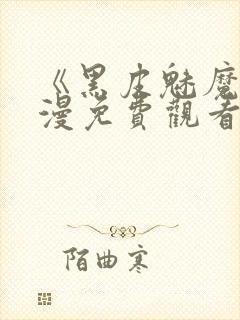 《黑皮魅魔
漫免費觀看
陌曲寒